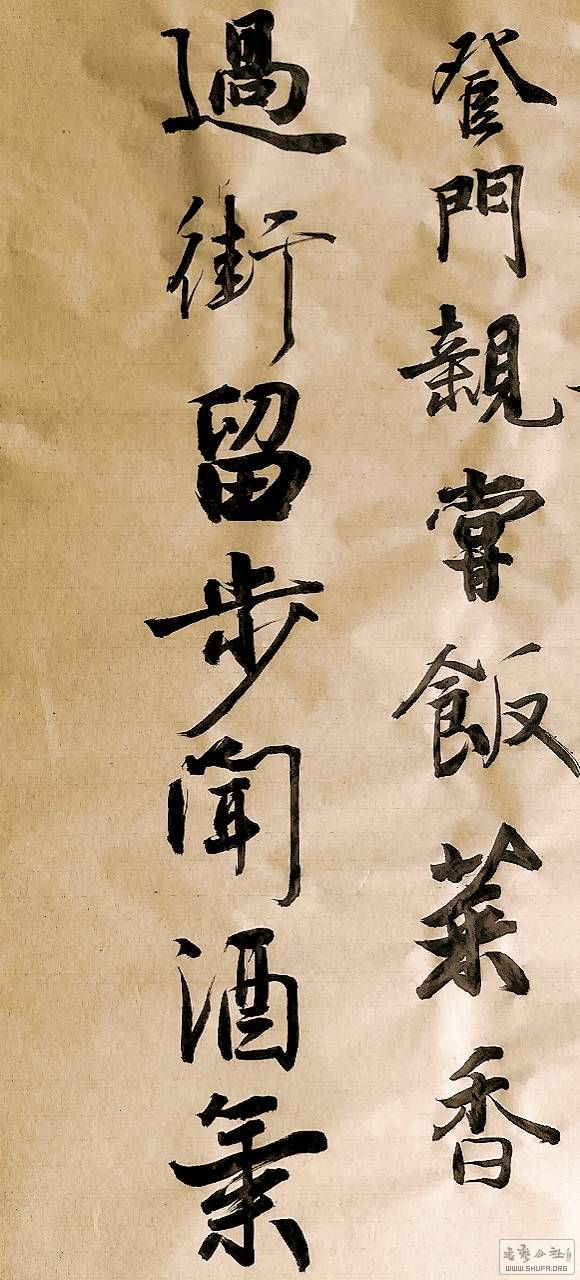 登門親嘗飯菜香
過街留步聞酒氣
WWW.SHUFA.ORG